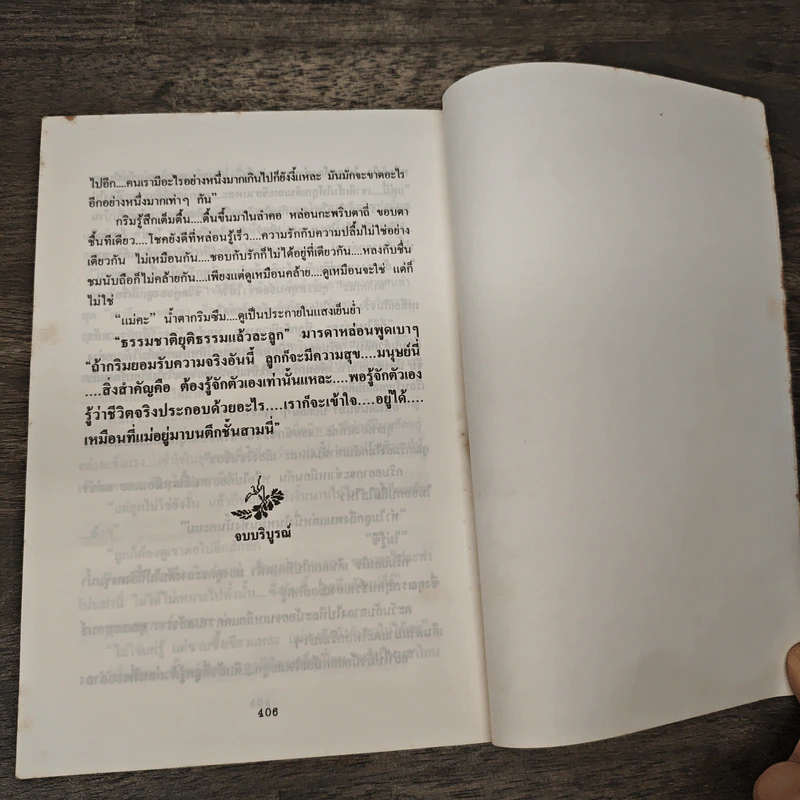 ไปอีก....คนเรามีอะไรอย่างหนึ่งมากเกินไปก็ยังงี้แหละ มันมักจะขาดอะไร
อีกอย่างหนึ่งมากเท่าๆ กัน”
กริมรู้สึกเต็มตื้น....ตื้นขึ้นมาในลำคอ หล่อนกะพริบตาถี่ ขอบตา
ชื้นทีเดียว....โชคยังดีที่หล่อนรู้เร็ว....ความรักกับความปลื้มไม่ใช่อย่าง
เดียวกัน ไม่เหมือนกัน....ชอบกับรักก็ไม่ได้อยู่ที่เดียวกัน....หลงกับชื่น
ชมนับถือก็ไม่คล้ายกัน....เพียงแต่ดูเหมือนคล้าย....ดูเหมือนจะใช่ แต่ก็
ไม่ใช่
“แม่คะ” น้ำตากริมซึม....ดูเป็นประกายในแสงเย็นย่ำ
“ธรรมชาติยุติธรรมแล้วละลูก” มารดาหล่อนพูดเบาๆ
“ถ้ากริมยอมรับความจริงอันนี้ ลูกก็จะมีความสุข....มนุษย์นี่
....สิ่งสำคัญคือ ต้องรู้จักตัวเองเท่านั้นแหละ....พอรู้จักตัวเอง
รู้ว่าชีวิตจริงประกอบด้วยอะไร....เราก็จะเข้าใจ....อยู่ได้....
เหมือนที่แม่อยู่มาบนตึกชั้นสามนี่”
จบบริบูรณ์
406